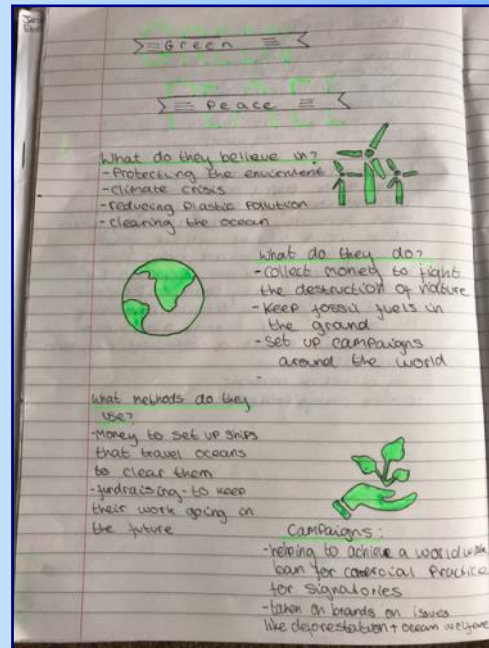 Green
Peace
What do they believe in?
-Protecting the enviroment
-climate crisis
-reducing plastic pollution
-clearing the ocean
What do they do?
-collect money to fight
the destruction of nature
-Keep fossil fuels in
the ground
-Set up campaigns
around the world
-
What methods do they
use?
-Money to set up ships
that travel oceans
to clear them
-fundraising-to keep
their work going in
the future
Campaigns:
-helping to achieve a world
ban for Practice
for signatories
-taken on brands on issues
like deforestation + ocean welfare